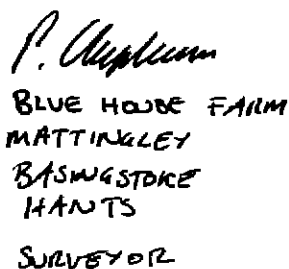 P.
BLUE HOUSE FARM
MATTINGLEY
BASINGSTOKE
HANTS
SURVEYOR